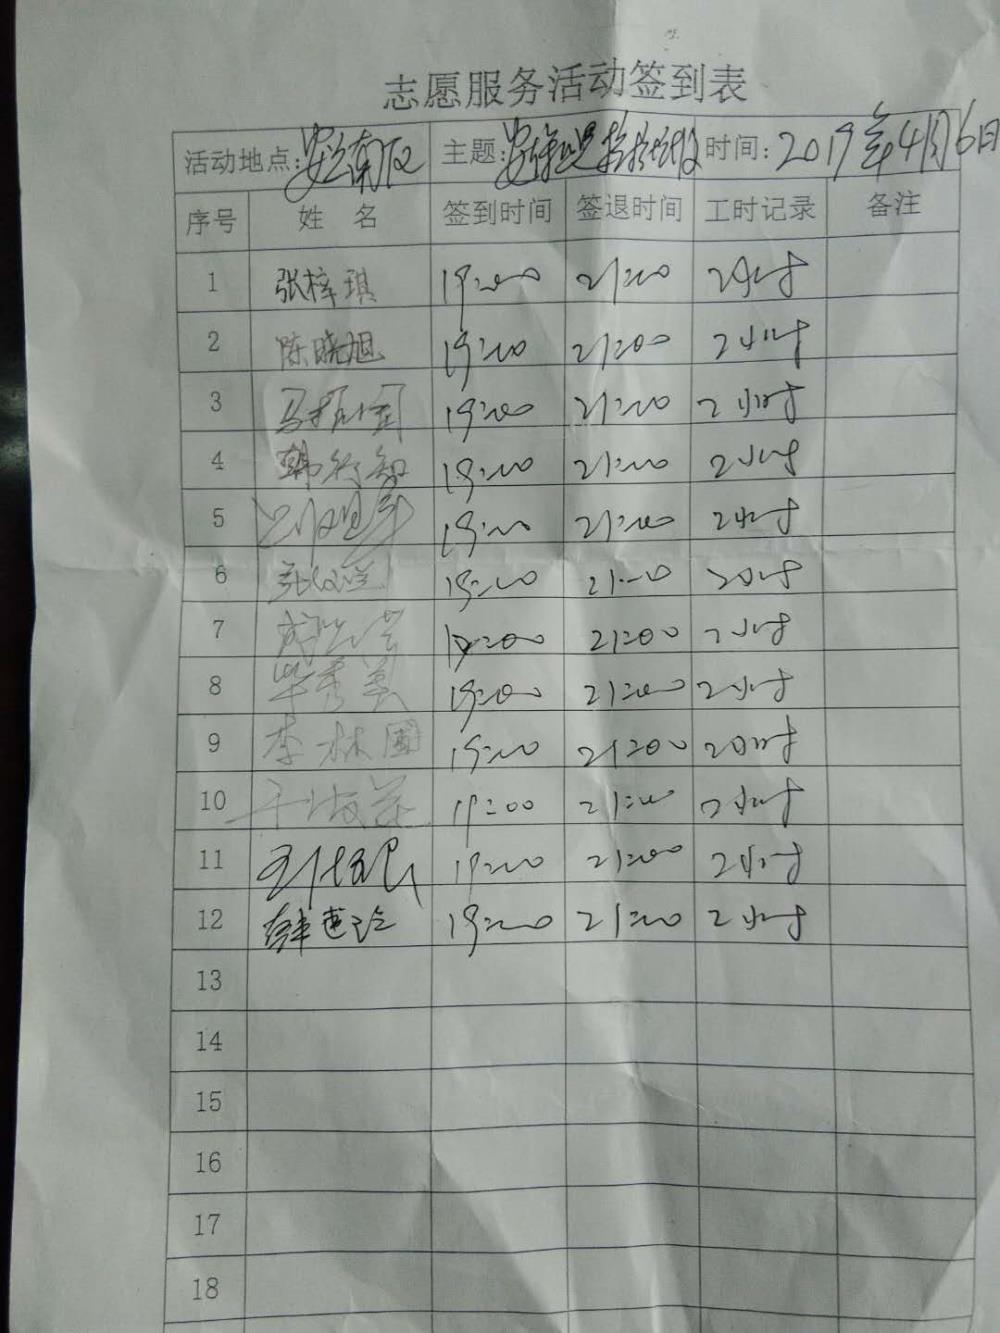 志愿服务活动签到表
活动地点: 安云南区 主题: 时间: 2019年4月6日
序号 姓 名 签到时间 签退时间 工时记录 备注
1 张梓琪 19:00 21:00 2小时
2 陈晓旭 19:00 21:00 2小时
3 19:00 21:00 2小时
4 韩行智 19:00 21:00 2小时
5 19:00 21:00 2小时
6 19:00 21:00 2小时
7 19:00 21:00 2小时
8 毕秀美 19:00 21:00 2小时
9 李林圃 19:00 21:00 2小时
10 19:00 21:00 2小时
11 19:00 21:00 2小时
12 19:00 21:00 2小时
13
14
15
16
17
18